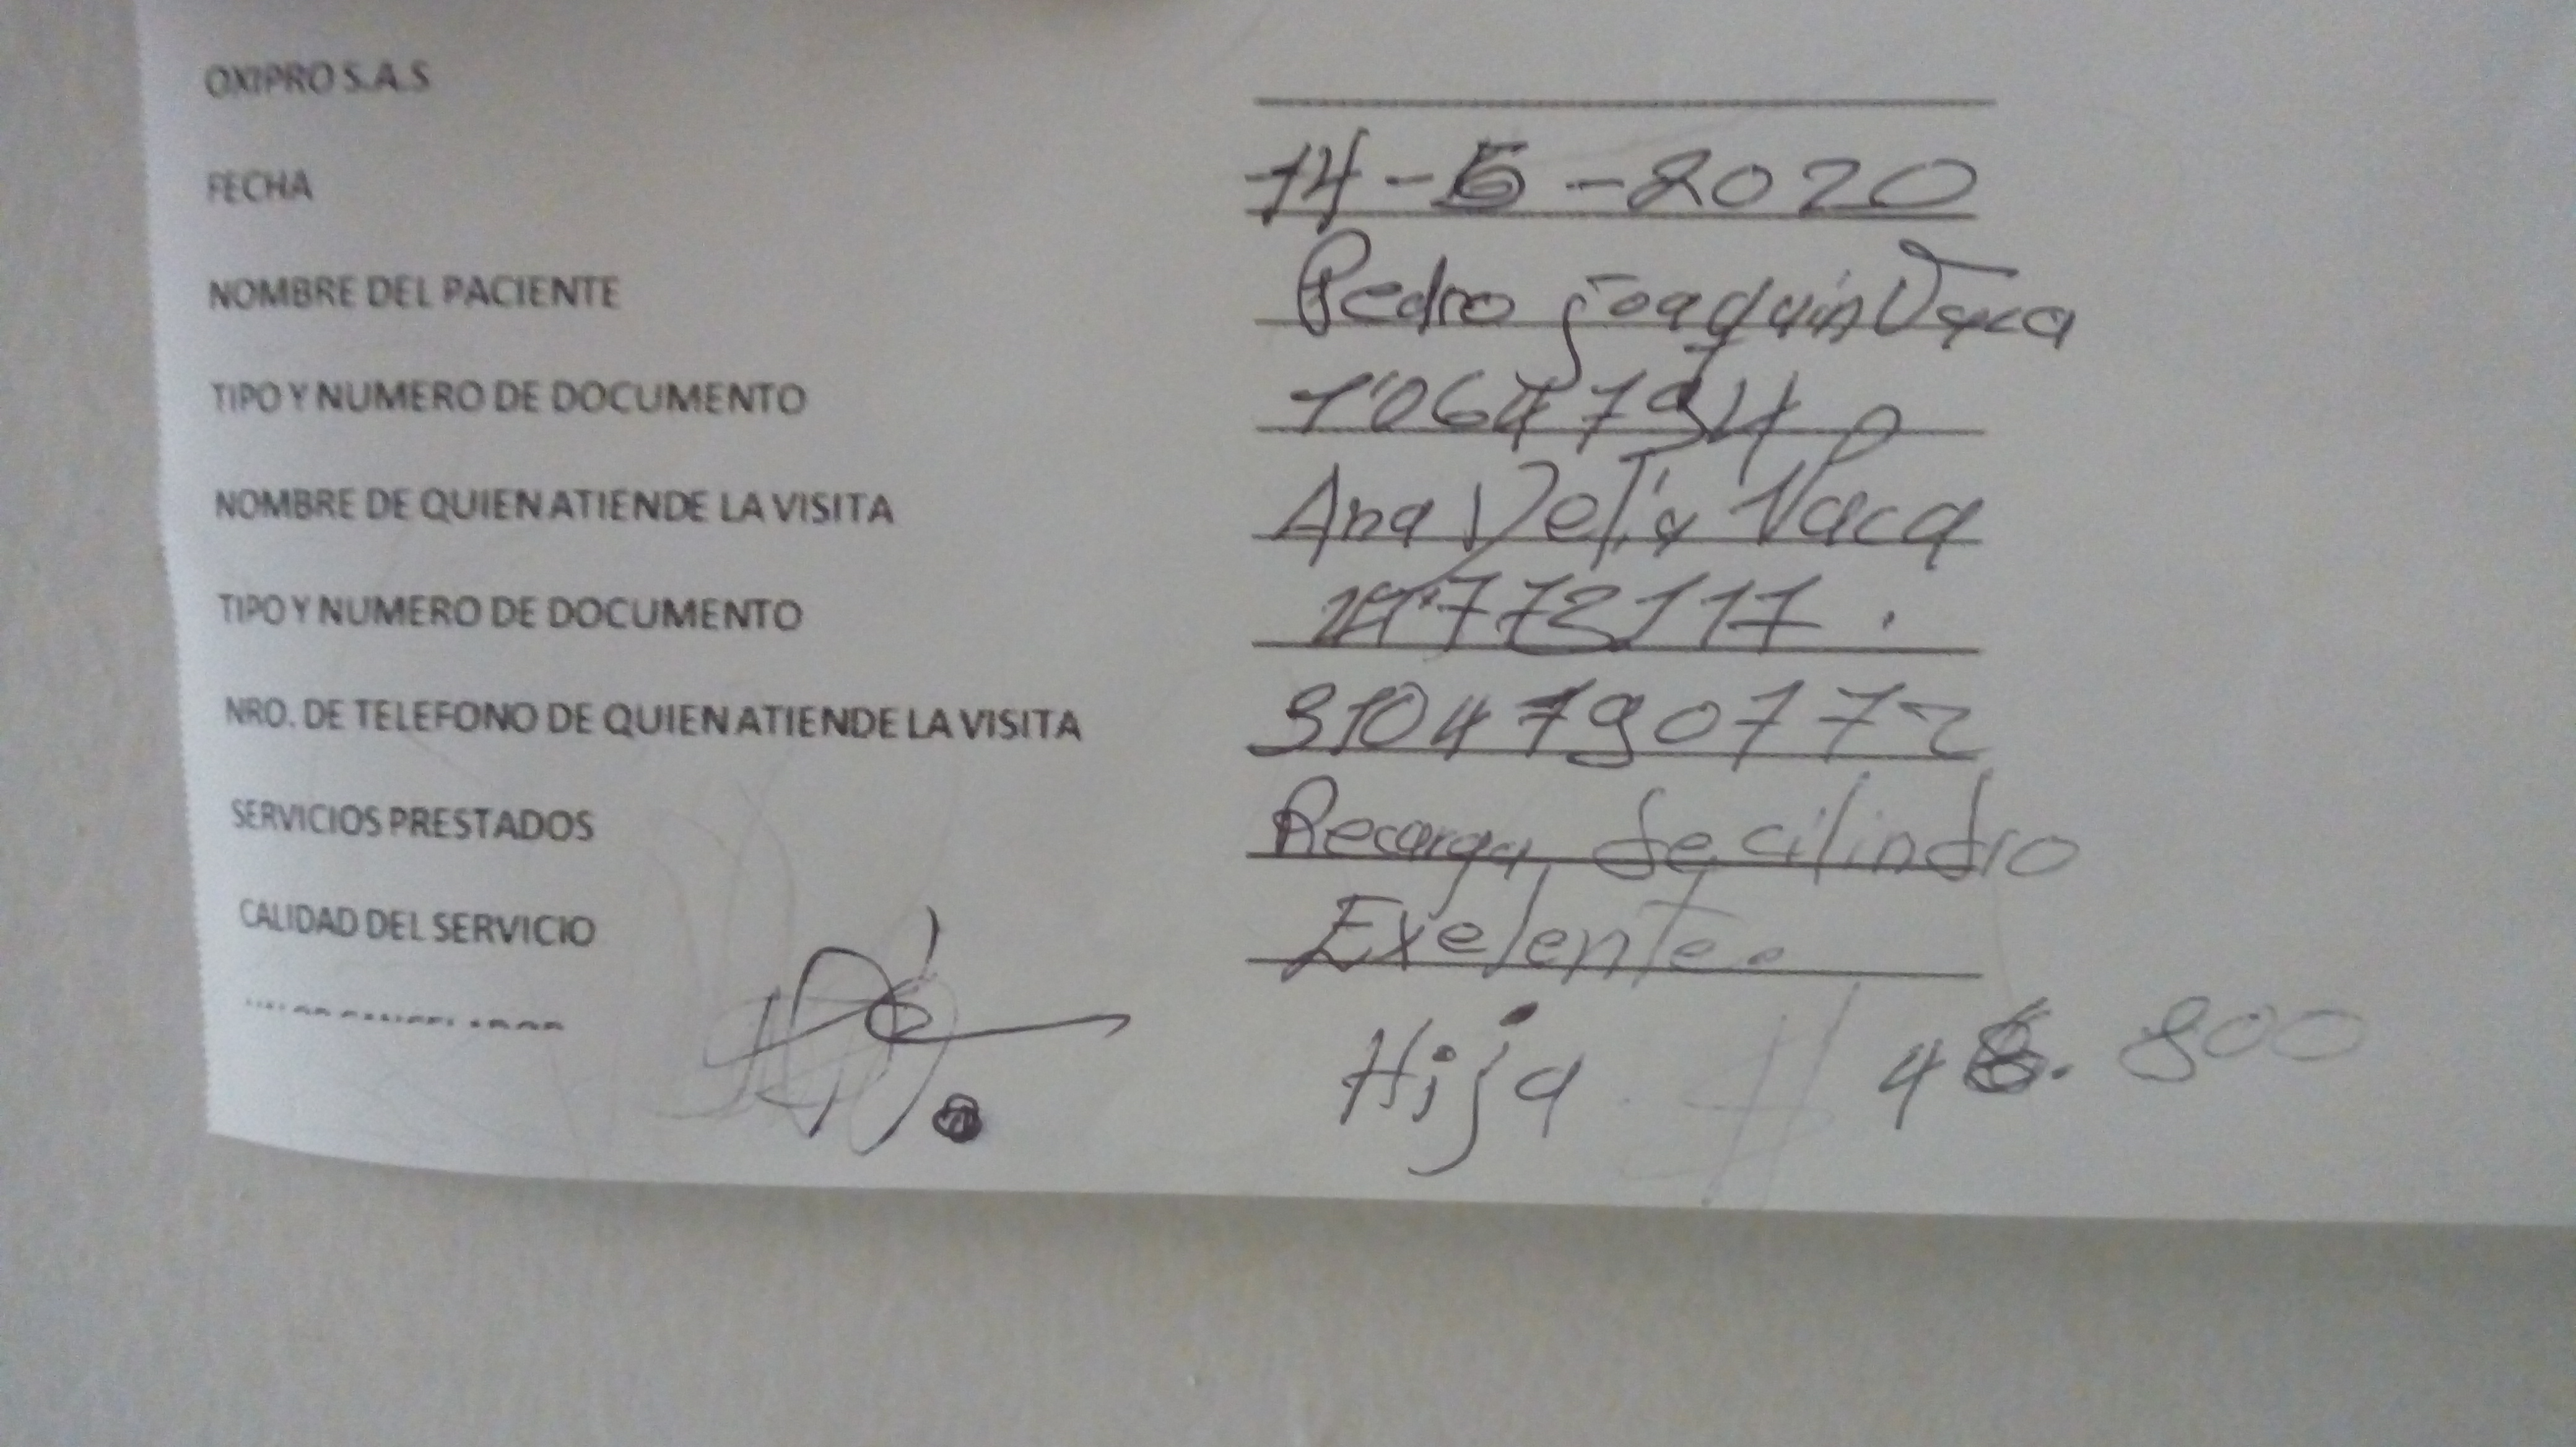 OXIPRO S.A.S
FECHA 14-5-2020
NOMBRE DEL PACIENTE Pedro joaquin Vaca
TIPO Y NUMERO DE DOCUMENTO 1'064794
NOMBRE DE QUIEN ATIENDE LA VISITA Ana Delia Vaca
TIPO Y NUMERO DE DOCUMENTO
NRO. DE TELEFONO DE QUIEN ATIENDE LA VISITA 3104790772
SERVICIOS PRESTADOS Recarga de cilindro
CALIDAD DEL SERVICIO Exelente.
Hija